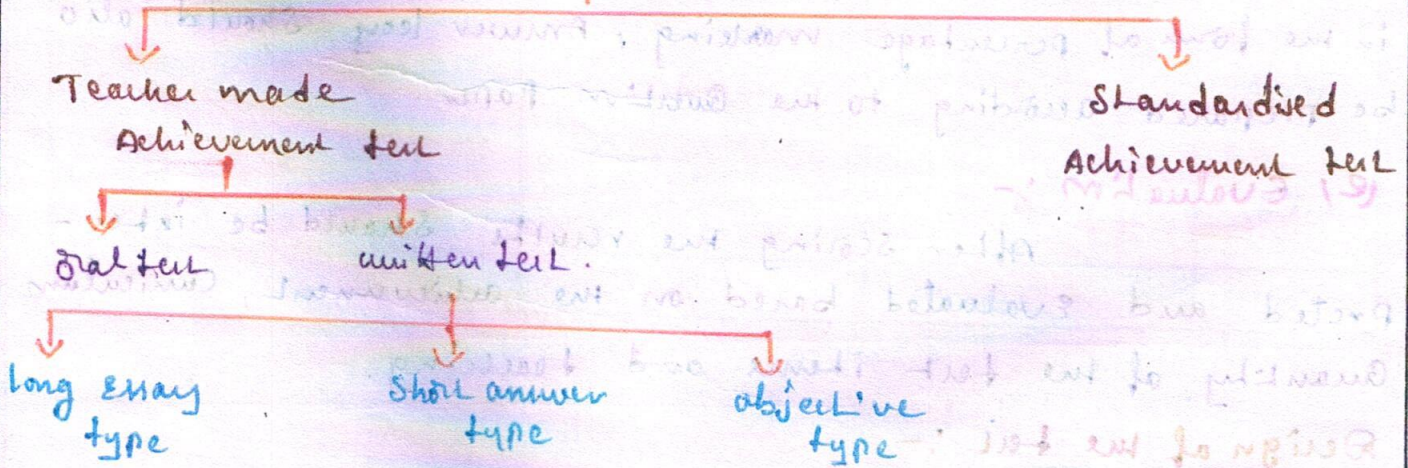 Teacher made
Achievement test
Standardised
Achievement test
Oral test
written test.
long Essay
type
Short answer
type
objective
type